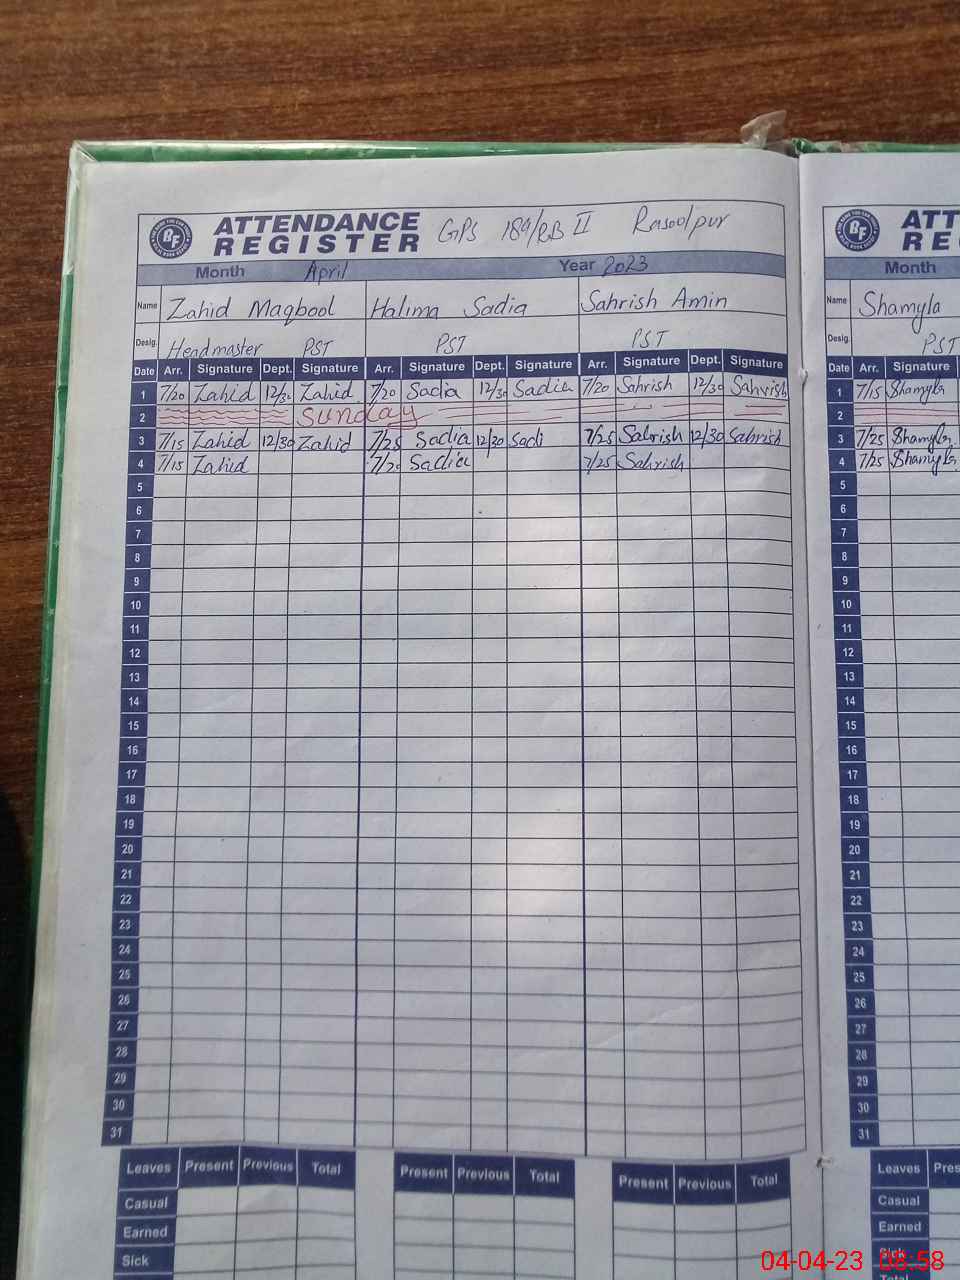 ATTENDANCE REGISTER GPS 189/RB II Rasoolpur
BF
Month April Year 2023
Name Zahid Maqbool Halima Sadia Sahrish Amin
Desig. Headmaster PST PST PST
Date Arr. Signature Dept. Signature Arr. Signature Dept. Signature Arr. Signature Dept. Signature
1 7/20 Zahid 12/30 Zahid 7/20 Sadia 12/30 Sadia 7/20 Sahrish 12/30 Sahrish
2 Sunday
3 7/15 Zahid 12/30 Zahid 7/25 Sadia 12/30 Sadi 7/25 Sahrish 12/30 Sahrish
4 7/15 Zahid 7/20 Sadia 7/25 Sahrish
5
6
7
8
9
10
11
12
13
14
15
16
17
18
19
20
21
22
23
24
25
26
27
28
29
30
31
Leaves Present Previous Total Present Previous Total Present Previous Total
Casual
Earned
Sick
ATT
RE
BF
Month
Name Shamyla
Desig. PST
Date Arr. Signature
1 7/15 Shamyla
2
3 7/25 Shamyla
4 7/25 Shamyla
5
6
7
8
9
10
11
12
13
14
15
16
17
18
19
20
21
22
23
24
25
26
27
28
29
30
31
Leaves Pres
Casual
Earned
Sick
04-04-23 08:58